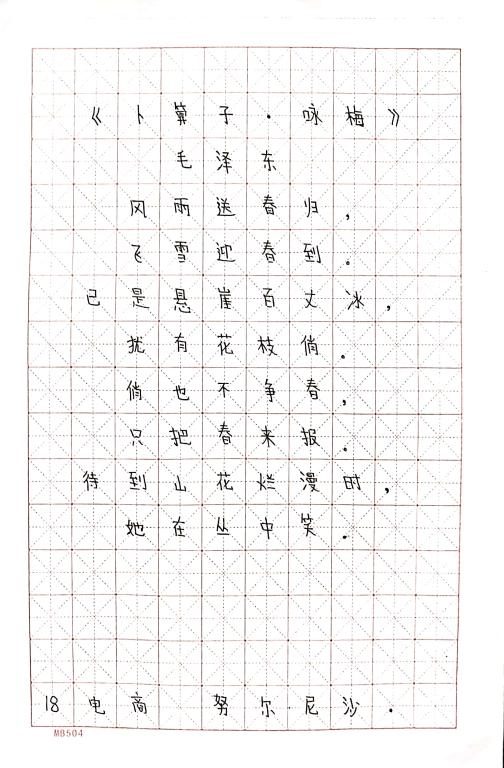 《卜算子·咏梅》
毛泽东
风雨送春归，
飞雪迎春到。
已是悬崖百丈冰，
扰有花枝俏。
俏也不争春，
只把春来报。
待到山花烂漫时，
她在丛中笑。
18电商 努尔尼沙·
MB504